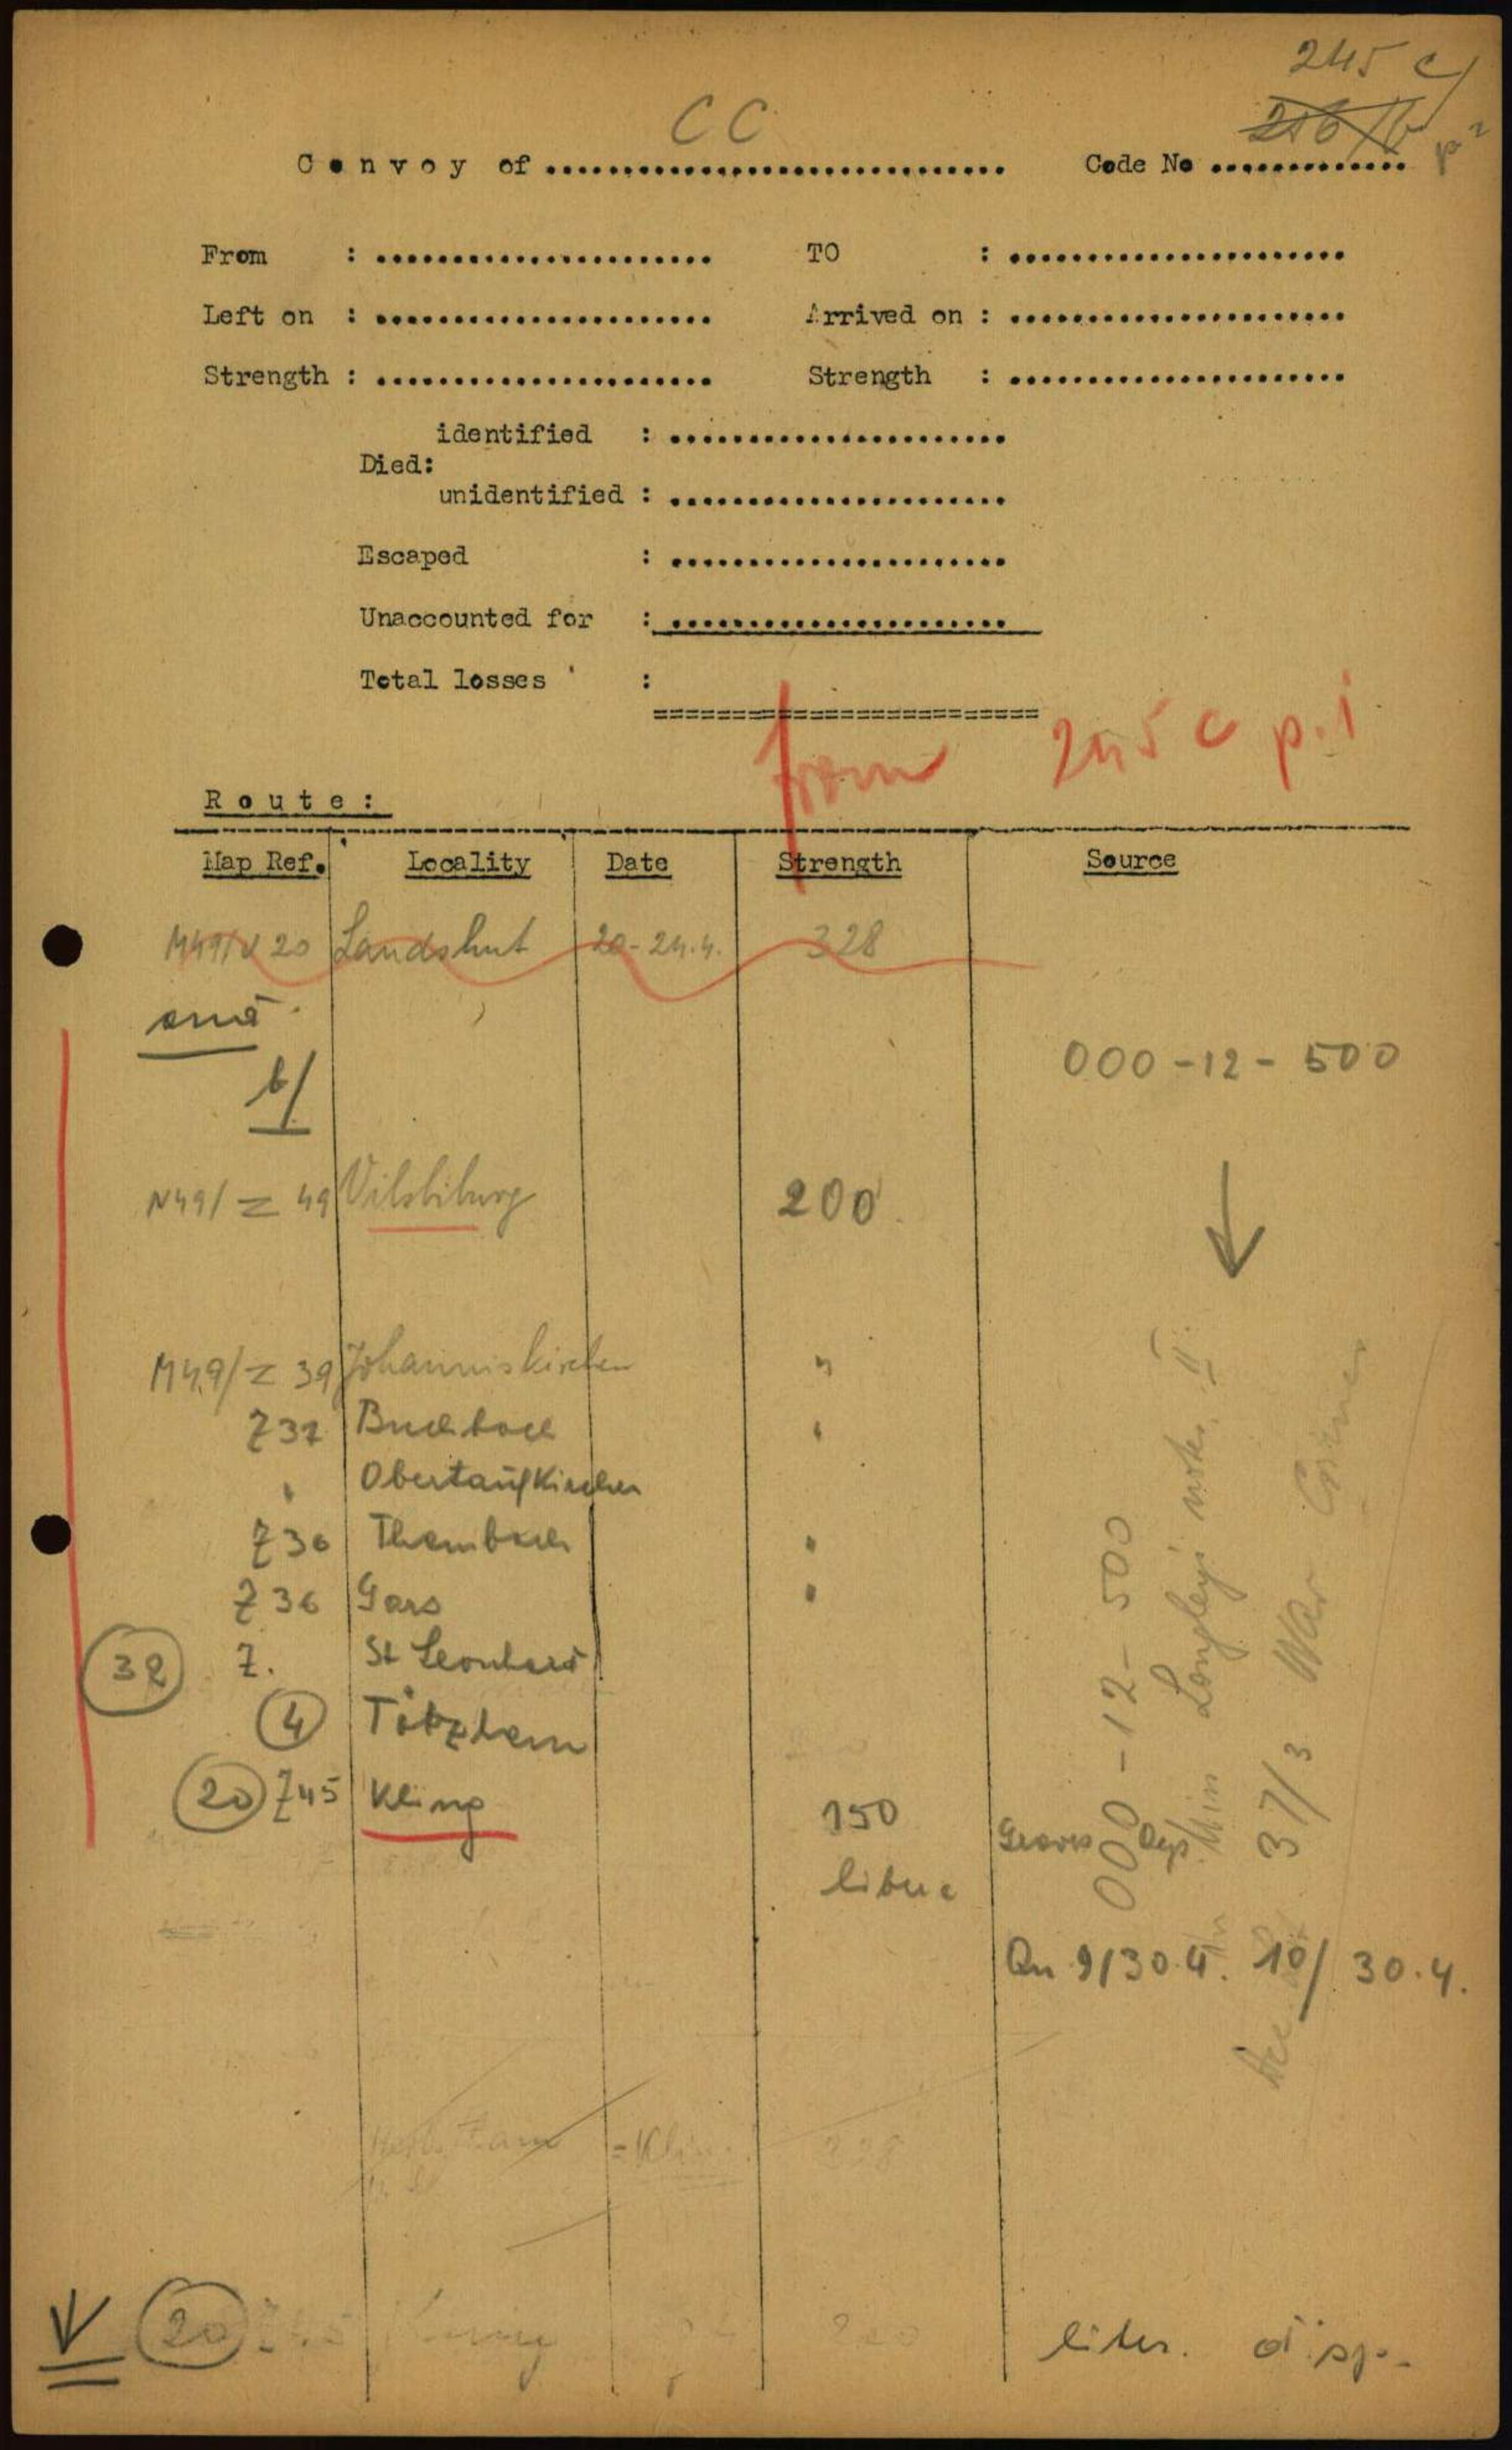 245 c/
CC
Convoy of .............................. Code No .............
p 2
From : ...................... TO : ......................
Left on : ...................... Arrived on : ......................
Strength : ...................... Strength : ......................
identified : ......................
Died:
unidentified : ......................
Escaped : ......................
Unaccounted for : ......................
Total losses :
=========================
from 245 c p.1
Route:
Map Ref. Locality Date Strength Source
M49/V 20 Landshut 20-24.4. 328
b/
000-12-500
N49/Z 49 Vilsbiburg 200
M49/Z 39 Johanniskirchen "
Z37 Buchbach "
" Obertaufkirchen
Z36 Thambach "
Z36 Gars "
32 Z. St Leonhard
4
20 Z45 Kling 150
Graves Dep
On 9/30.4. 10/ 30.4.
000-12-500
Longley's notes II
37/3 War Crimes
= Klin
328
20
liber. disp.